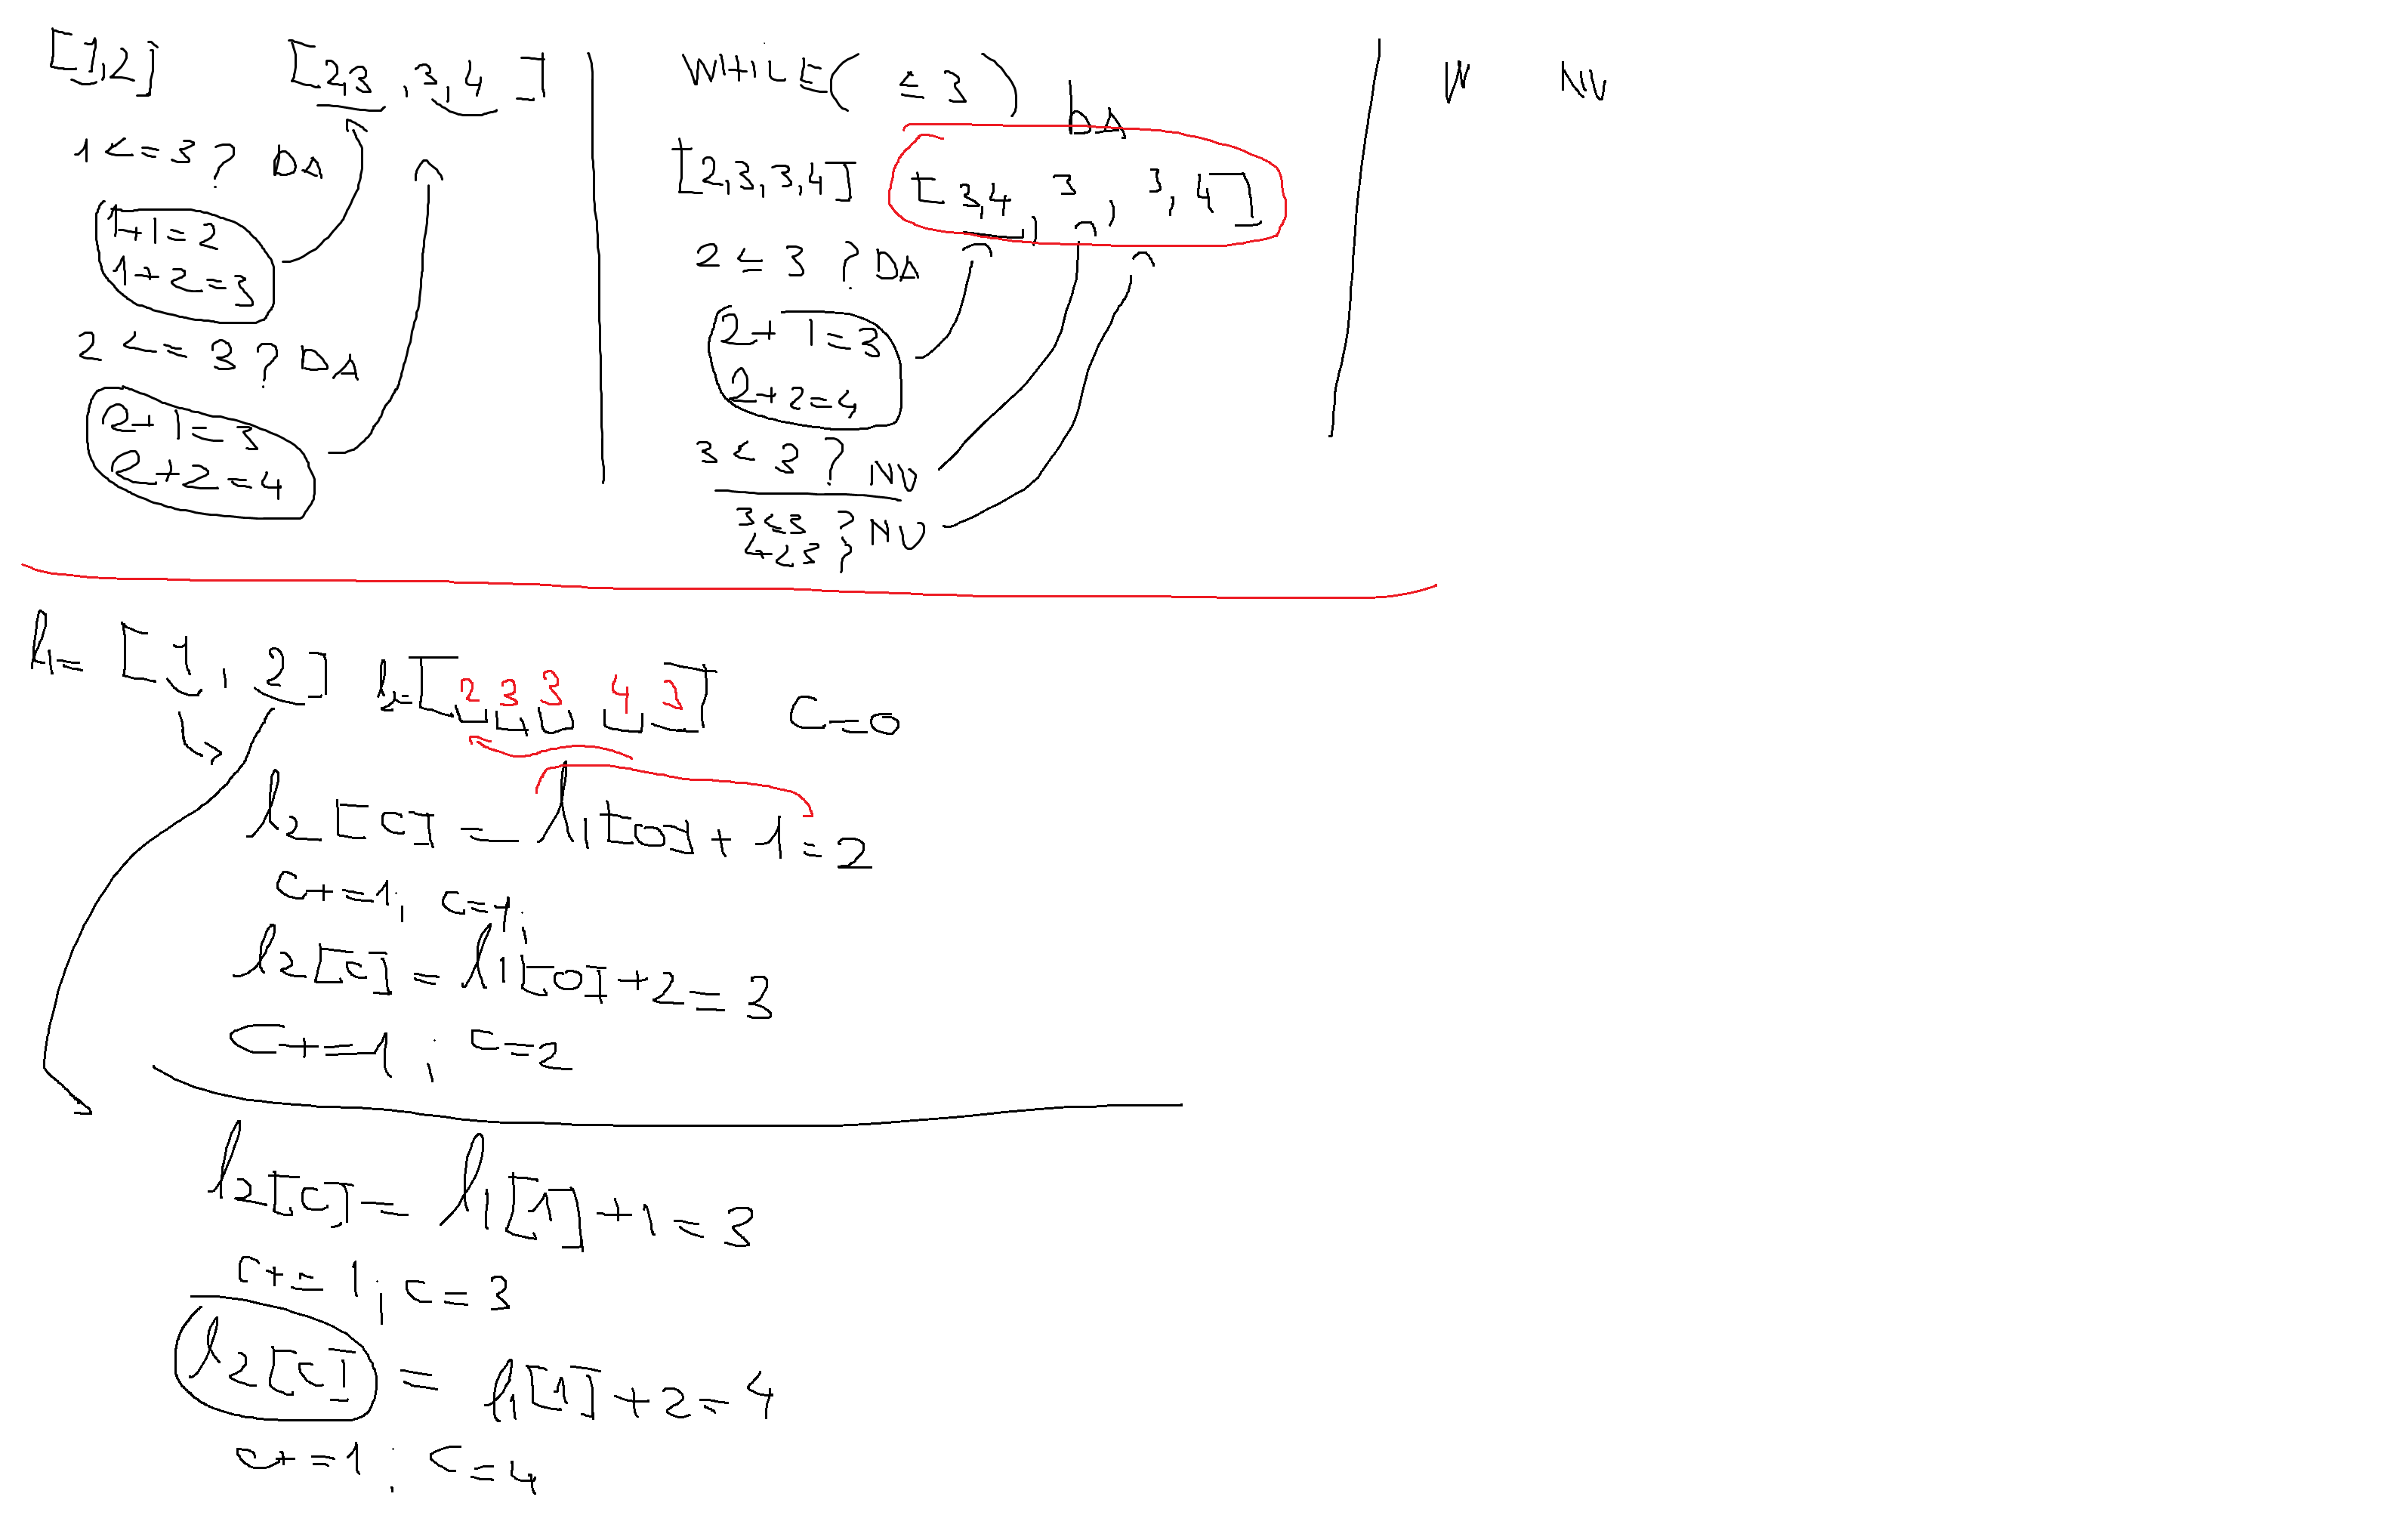 [1,2] [2,3 ,3,4 ]
1<=3? DA
1+1=2
1+2=3
2<=3? DA
2+1=3
2+2=4
WHILE( ≤ 3 ) DA
[2,3,3,4] [3,4, 3, 3,4]
2≤3? DA
2+1=3
2+2=4
3<3? NU
3≤3? NU
4≤3?
W NU
l1= [1, 2] l2=[2 3 3 4 3] C=0
l2[c] = l1[0]+1=2
c+=1; c=1;
l2[c] = l1[0]+2=3
C+=1; c=2
l2[c] = l1[1]+1=3
c+=1; c=3
l2[c] = l1[1]+2=4
c+=1; c=4